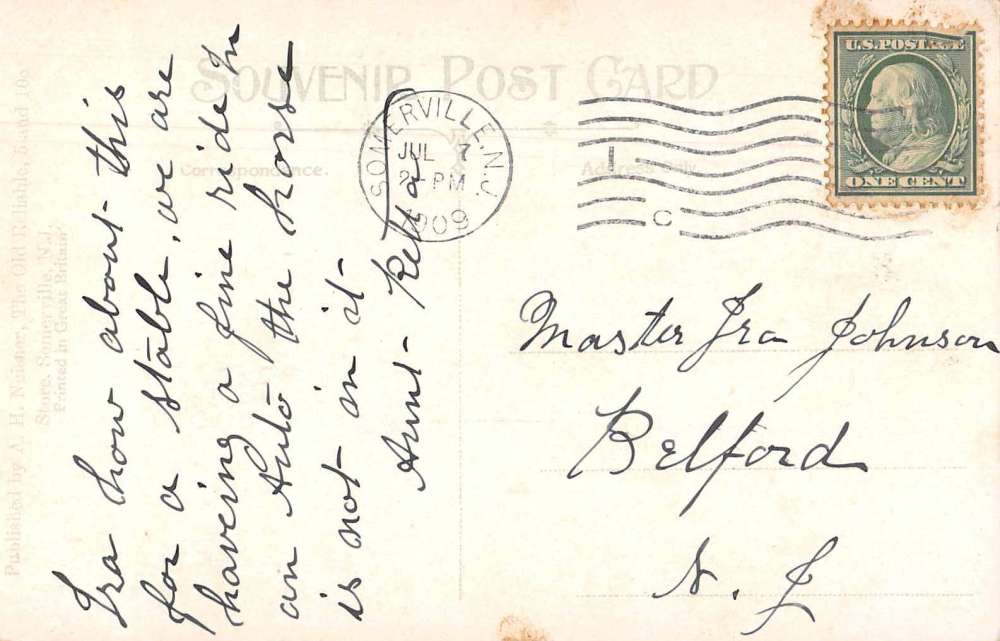 SOUVENIR POST CARD
Correspondence.
Address Only.
U.S. POSTAGE
ONE CENT
SOMERVILLE, N.J.
JUL 7
PM
1909
C
Ira how about this
for a stable, we are
haveing a fine ride in
an Auto the horse
is not in it
Aunt
Master Ira Johnson
Belford
N. J
Published by A. H. The Old Reliable, 5 and 10c
Store, Somerville, N.J.
Printed in Great Britain